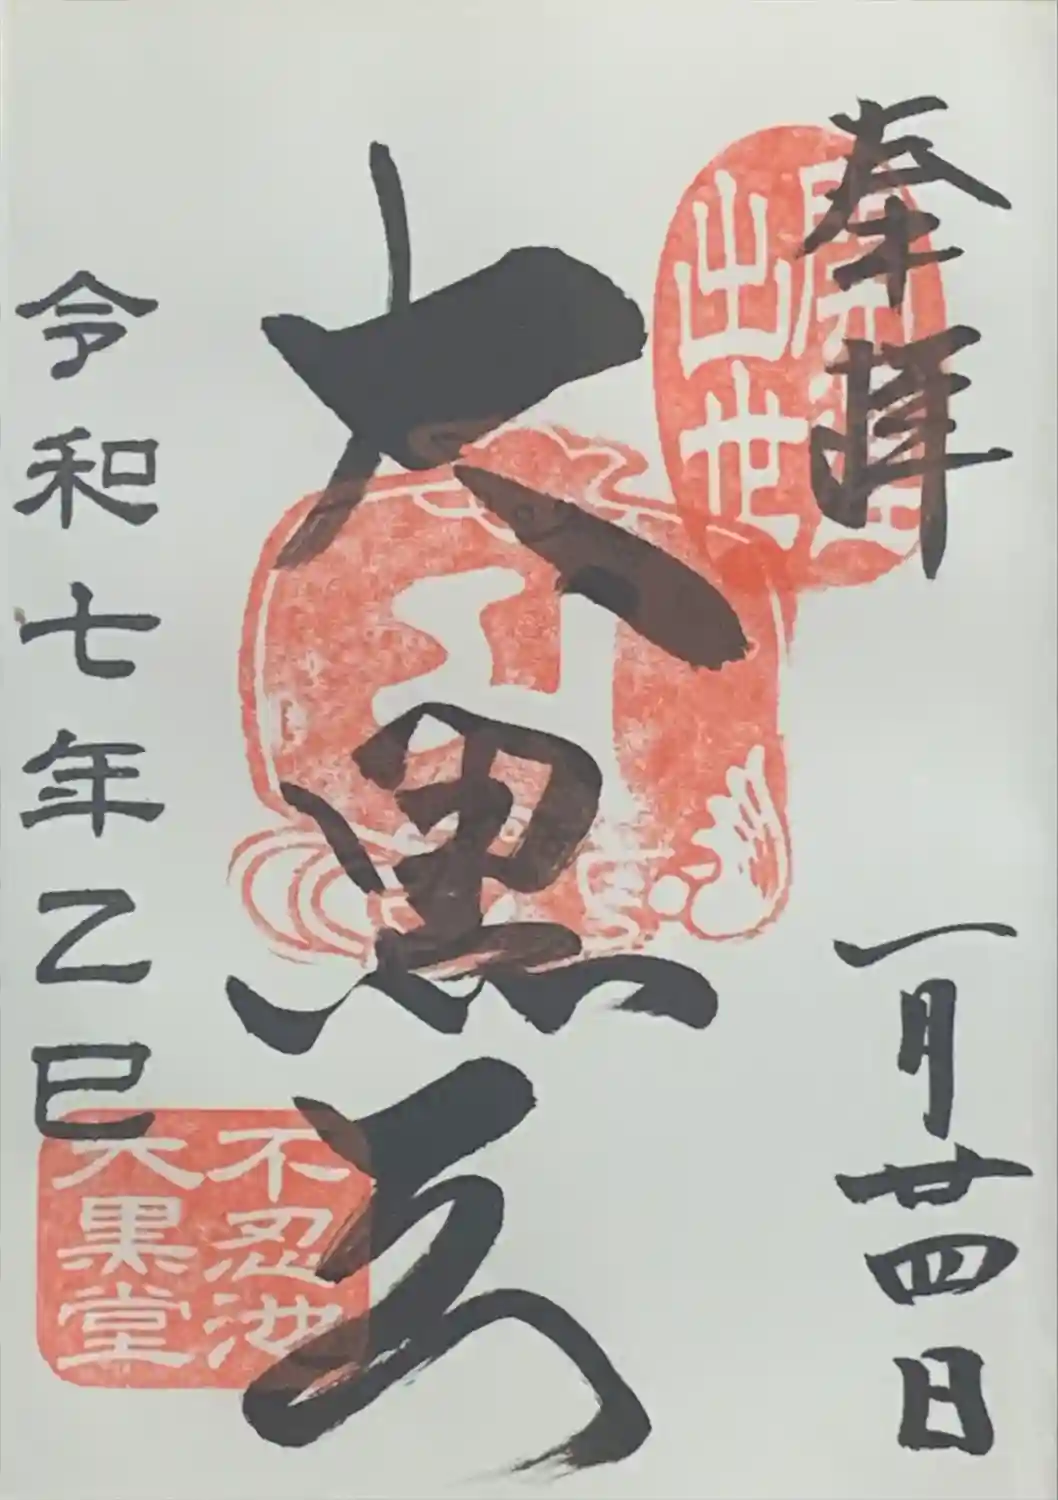 奉拝
一月廿四日
開運
出世
大黒天
不忍池
大黒堂
令和七年乙巳